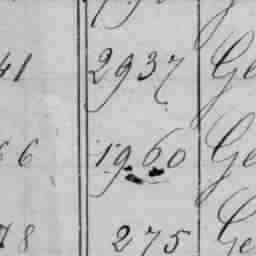 41 2937 Ge
66 1960 Ge
78 275 Ge